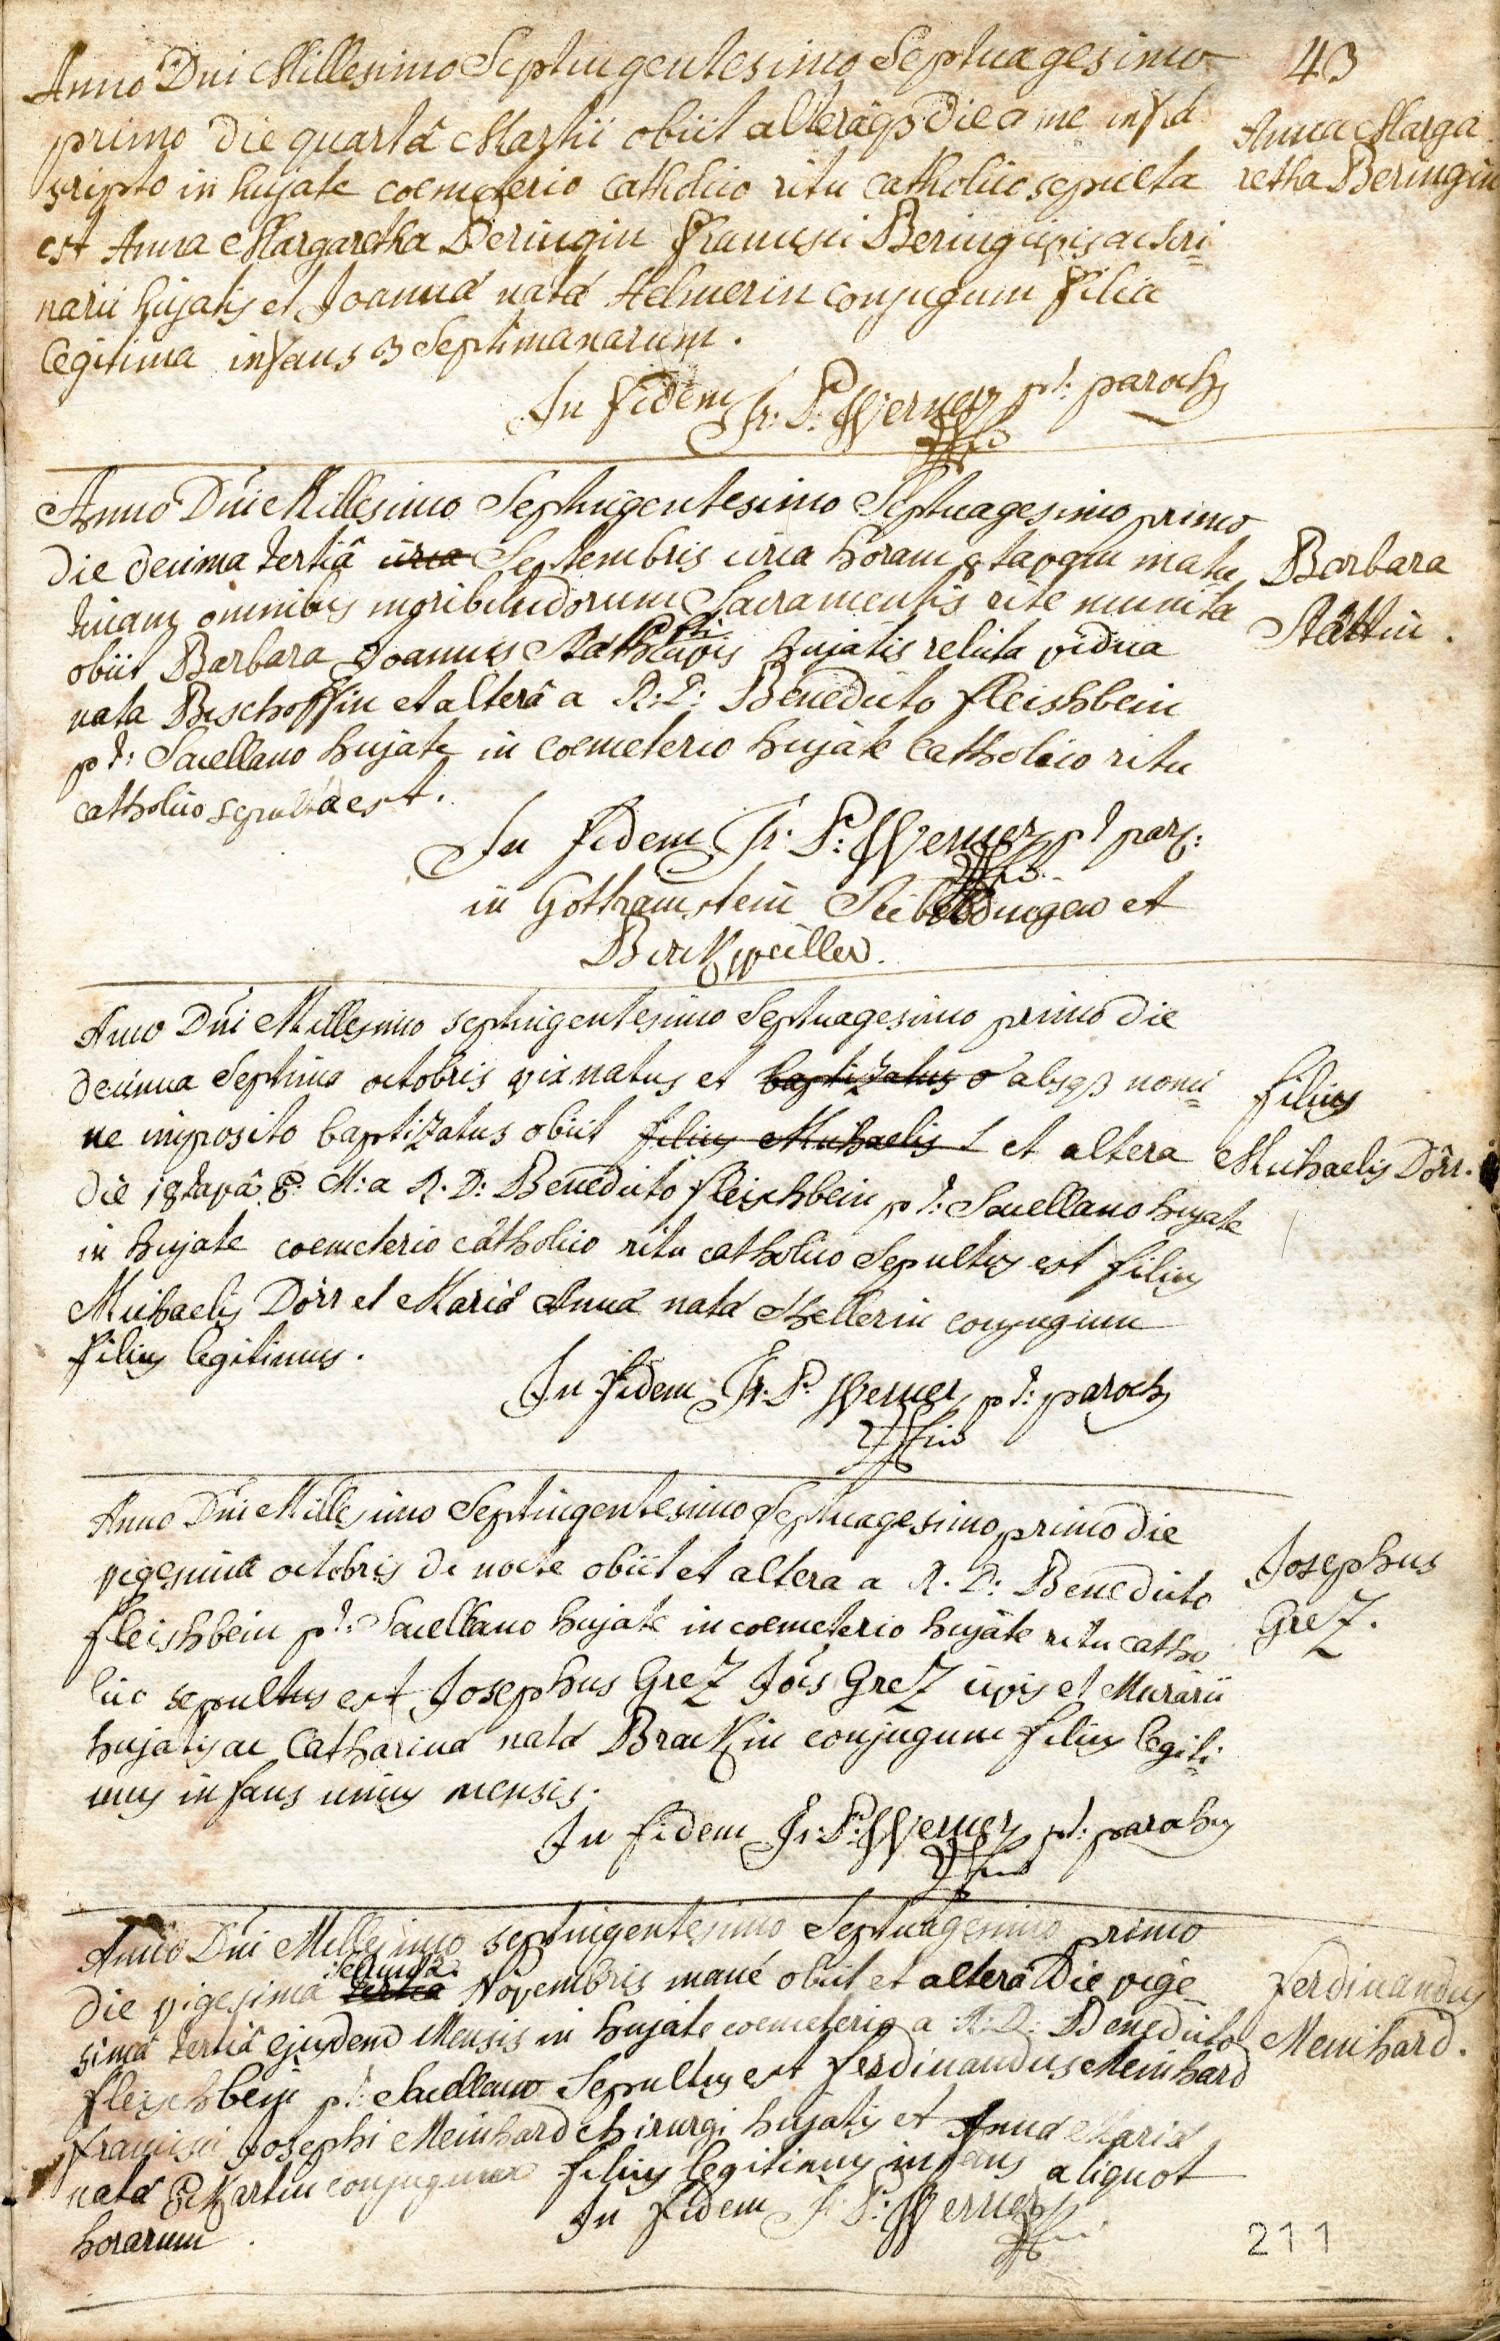 43
Anno Dni Millesimo Septingentesimo Septuagesimo
primo die quartâ Martii obiit alterâq3 die a me infra
scripto in hujate coemeterio catholico ritu catholico sepulta
est Anna Margaretha Beringin Francisci Bering civis ac scri=
narii hujatis et Joanna nata Helmerin conjugum filia
legitima infans 3 Septimanarum.
Anna Marga
retha Beringin
In fidem Fr: P: Werner pt: paroch
Anno Dni Millesimo Septingentesimo Septuagesimo primo
die decima tertiâ circa Septembris circa horam 8tavam matu
tinam omnibus moribundorum Sacramentis rite munita
obiit Barbara Joannis civis hujatis relicta vidua
nata Bischoffin et alterâ a R: D: Benedicto fleishbein
pt: Sacellano hujate in coemeterio hujate catholico ritu
catholico sepulta est.
Barbara
Stättin.
In fidem Fr. P: Werner pt par:
in Gothramstein Siebeldingen et
Birckweiller.
Anno Dni Millesimo septingentesimo Septuagesimo primo die
decima Septima octobris vix natus et baptizatus absq3 nomi=
ne imposito baptizatus obiit filius Michaelis et altera
die 18tavâ M: a R. D: Benedicto fleischbein pt: Sacellano hujate
in hujate coemeterio catholico ritu catholico Sepultus est filius
Michaelis Dörr et Maria Anna nata Hellerin conjugum
filius legitimus.
filius
Michaelis Dörr.
In fidem Fr. P. Werner pt: paroch
Anno Dni Millesimo Septingentesimo Septuagesimo primo die
vigesima octobris de nocte obiit et altera a R. D: Benedicto
fleishbein pt: Sacellano hujate in coemeterio hujate ritu catho
lico sepultus est Josephus GreZ Jois GreZ civis et Murarii
hujatis ac Catharina nata Brackin conjugum filius legiti=
mus infans unius mensis.
Josephus
GreZ.
In fidem Fr: P: Werner pt: parochus
Anno Dni Millesimo septingentesimo Septuagesimo primo
die vigesima secunda tertia Novembris mane obiit et altera die vige
sima tertiâ ejusdem Mensis in hujate coemeterio a R: D: Benedicto
fleischbein pt: Sacellano Sepultus est ferdinandus Meinhard
francisci Josephi Meinhard chirurgi hujatis et Anna Maria
nata conjugum filius legitimus infans aliquot
horarum.
Ferdinandus
Meinhard.
In fidem Fr. P: Werner
211